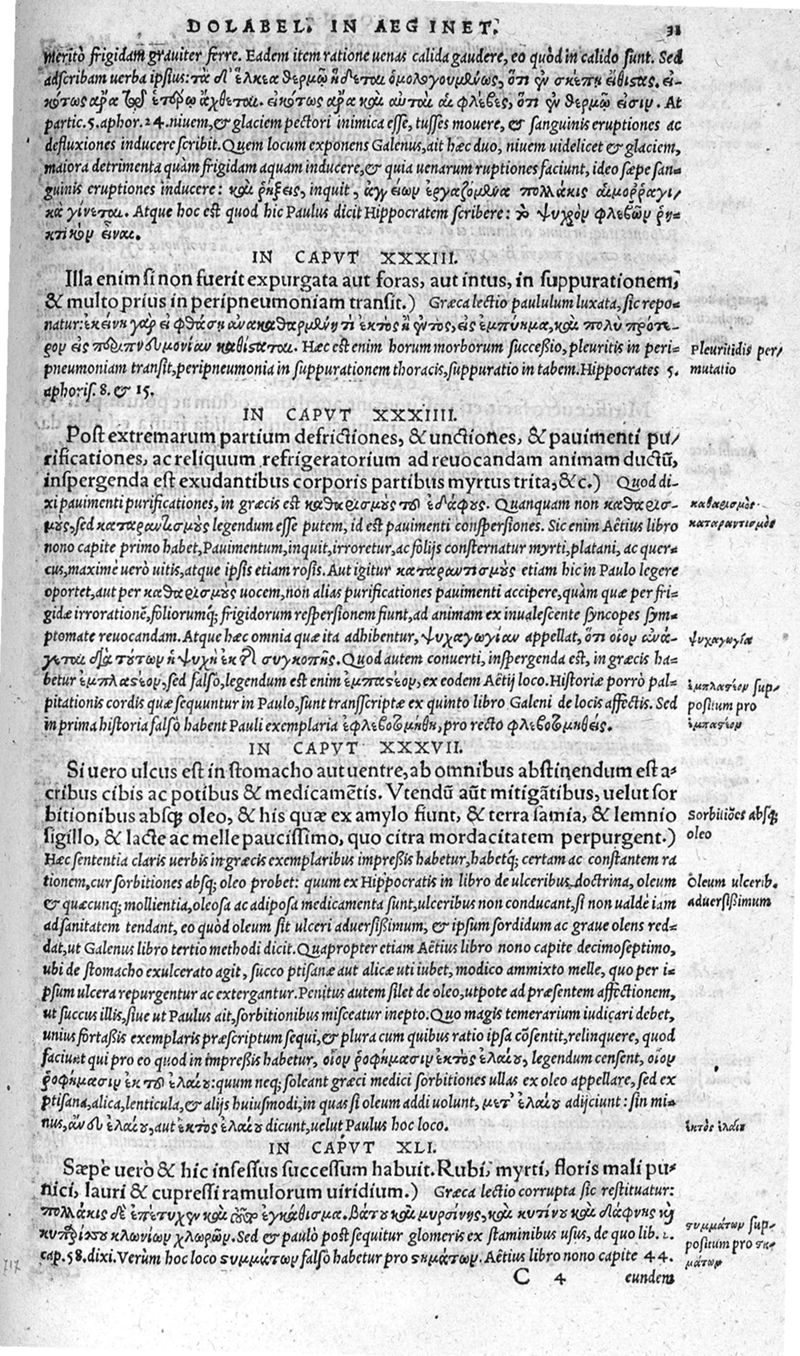 DOLABEL. IN AEGINET.
meritò frigidam grauiter ferre. Eadem item ratione uenas calida gaudere, eo quòd in calido sunt. Sed
adscribam uerba ipsius: τὰ δ' ἕλκεα θερμῷ ἥδεται ὁμολογουμένως, ὅτι ἐν σκέπῃ εἴθισται. εἰ-
κότως ἄρα ἄχθεται. εἰκότως ἄρα καὶ αὐταὶ αἱ φλέβες, ὅτι ἐν θερμῷ εἰσιν. At
partic. 5. aphor. 24. niuem, & glaciem pectori inimica esse, tusses mouere, & sanguinis eruptiones ac
defluxiones inducere scribit. Quem locum exponens Galenus, ait hæc duo, niuem uidelicet & glaciem,
maiora detrimenta quàm frigidam aquam inducere, & quia uenarum ruptiones faciunt, ideo sæpe san-
guinis eruptiones inducere: καὶ ῥήξεις, inquit, ἀγγείων ἐργαζόμενα πολλάκις αἱμορραγι-
κὰ γίνεται. Atque hoc est quod hic Paulus dicit Hippocratem scribere: τὸ ψυχρὸν φλεβῶν ῥη-
κτικὸν εἶναι.
IN CAPVT XXXIII.
Illa enim si non fuerit expurgata aut foras, aut intus, in suppurationem,
& multo prius in peripneumoniam transit.) Græca lectio paululum luxata, sic repo-
natur: ἐκείνη γὰρ εἰ φθάσῃ ἀνακαθαρμένη τὶ ἐκτὸς ἢ ἐντὸς, εἰς ἐμπύημα, καὶ πολὺ πρότε-
ρον εἰς περιπνευμονίαν καθίσταται. Hæc est enim horum morborum successio, pleuritis in peri-
pneumoniam transit, peripneumonia in suppurationem thoracis, suppuratio in tabem. Hippocrates 5.
aphoris. 8. & 15.
Pleuritidis per/
mutatio
IN CAPVT XXXIIII.
Post extremarum partium defrictiones, & unctiones, & pauimenti pu/
rificationes, ac reliquum refrigeratorium ad reuocandam animam ductũ,
inspergenda est exudantibus corporis partibus myrtus trita, &c.) Quod di-
xi pauimenti purificationes, in græcis est καθαρισμοὺς τοῦ ἐδάφους. Quanquam non καθαρισ-
μοὺς, sed καταραντισμοὺς legendum esse putem, id est pauimenti conspersiones. Sic enim Aëtius libro
nono capite primo habet, Pauimentum, inquit, irroretur, ac folijs consternatur myrti, platani, ac quer-
cus, maximè uerò uitis, atque ipsis etiam rosis. Aut igitur καταραντισμοὺς etiam hic in Paulo legere
oportet, aut per καθαρισμοὺς uocem, non alias purificationes pauimenti accipere, quàm quæ per fri-
gidæ irrorationẽ, foliorumq; frigidorum respersionem fiunt, ad animam ex inualescente syncopes sym-
ptomate reuocandam. Atque hæc omnia quæ ita adhibentur, ψυχαγωγίαν appellat, ὅτι οἷον ἀνά-
γεται διὰ τούτων ἡ ψυχὴ ἐκ τῆς συγκοπῆς. Quod autem conuerti, inspergenda est, in græcis ha-
betur ἐμπλαστέον, sed falsò, legendum est enim ἐμπαστέον, ex eodem Aëtij loco. Historiæ porrò pal-
pitationis cordis quæ sequuntur in Paulo, sunt transscriptæ ex quinto libro Galeni de locis affectis. Sed
in prima historia falsò habent Pauli exemplaria ἐφλεβοτομήθη, pro recto φλεβοτομηθείς.
καθαρισμός
καταραντισμός
ψυχαγωγία
ἐμπλαστέον sup/
positum pro
ἐμπαστέον
IN CAPVT XXXVII.
Si uero ulcus est in stomacho aut uentre, ab omnibus abstinendum est a-
cribus cibis ac potibus & medicamẽtis. Vtendũ aũt mitigãtibus, uelut sor
bitionibus absq; oleo, & his quæ ex amylo fiunt, & terra samia, & lemnio
sigillo, & lacte ac melle paucissimo, quo citra mordacitatem perpurgent.)
Hæc sententia claris uerbis in græcis exemplaribus impressis habetur, habetq; certam ac constantem ra
tionem, cur sorbitiones absq; oleo probet: quum ex Hippocratis in libro de ulceribus doctrina, oleum
& quæcunq; mollientia, oleosa ac adiposa medicamenta sunt, ulceribus non conducant, si non ualde iam
ad sanitatem tendant, eo quòd oleum sit ulceri aduersissimum, & ipsum sordidum ac graue olens red-
dat, ut Galenus libro tertio methodi dicit. Quapropter etiam Aëtius libro nono capite decimoseptimo,
ubi de stomacho exulcerato agit, succo ptisanæ aut alicæ uti iubet, modico ammixto melle, quo per i-
psum ulcera repurgentur ac extergantur. Penitus autem silet de oleo, utpote ad præsentem affectionem,
ut succus illis, siue ut Paulus ait, sorbitionibus misceatur inepto. Quo magis temerarium iudicari debet,
unius fortassis exemplaris præscriptum sequi, & plura cum quibus ratio ipsa cõsentit, relinquere, quod
faciunt qui pro eo quod in impressis habetur, οἷον ῥοφήμασιν ἐκτὸς ἐλαίου, legendum censent, οἷον
ῥοφήμασιν ἐκ τοῦ ἐλαίου: quum neq; soleant græci medici sorbitiones ullas ex oleo appellare, sed ex
ptisana, alica, lenticula, & alijs huiusmodi, in quas si oleum addi uolunt, μετ' ἐλαίου adijciunt: sin mi-
nus, ἄνευ ἐλαίου, aut ἐκτὸς ἐλαίου dicunt, uelut Paulus hoc loco.
Sorbitiões absq;
oleo
Oleum ulcerib.
aduersissimum
ἐκτὸς ἐλαίου
IN CAPVT XLI.
Sæpe uero & hic insessus successum habuit. Rubi, myrti, floris mali pu-
nici, lauri & cupressi ramulorum uiridium.) Græca lectio corrupta sic restituatur:
πολλάκις δὲ ἐπέτυχεν καὶ ἐγκάθισμα. βάτου καὶ μυρσίνης, καὶ κυτίνου καὶ δάφνης καὶ
κυπαρίσσου κλωνίων χλωρῶν. Sed & paulò post sequitur glomeris ex staminibus usus, de quo lib.
cap. 58. dixi. Verùm hoc loco συμμάτων falsò habetur pro στημάτων. Aëtius libro nono capite 44.
συμμάτων sup/
positum pro στη-
μάτων
C 4 eundem